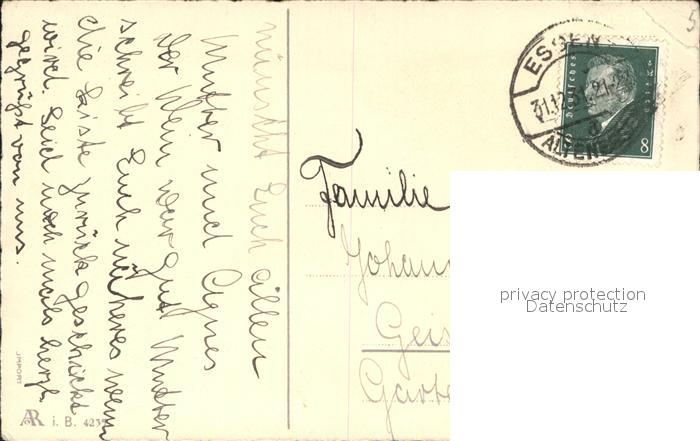 wünscht Euch allen
Mutter und Agnes
Der Wein war gut Mutter
schreibt Euch näheres wenn
die Kiste zurück geschickt
wird. Seid noch mals herzl.
gegrüßt von uns.
ESSEN
31.12.31.21-
a
Deutsches
8
8
Familie
Johann
Geis
Garte
privacy protection
Datenschutz
IMPORT
AR i. B. 423